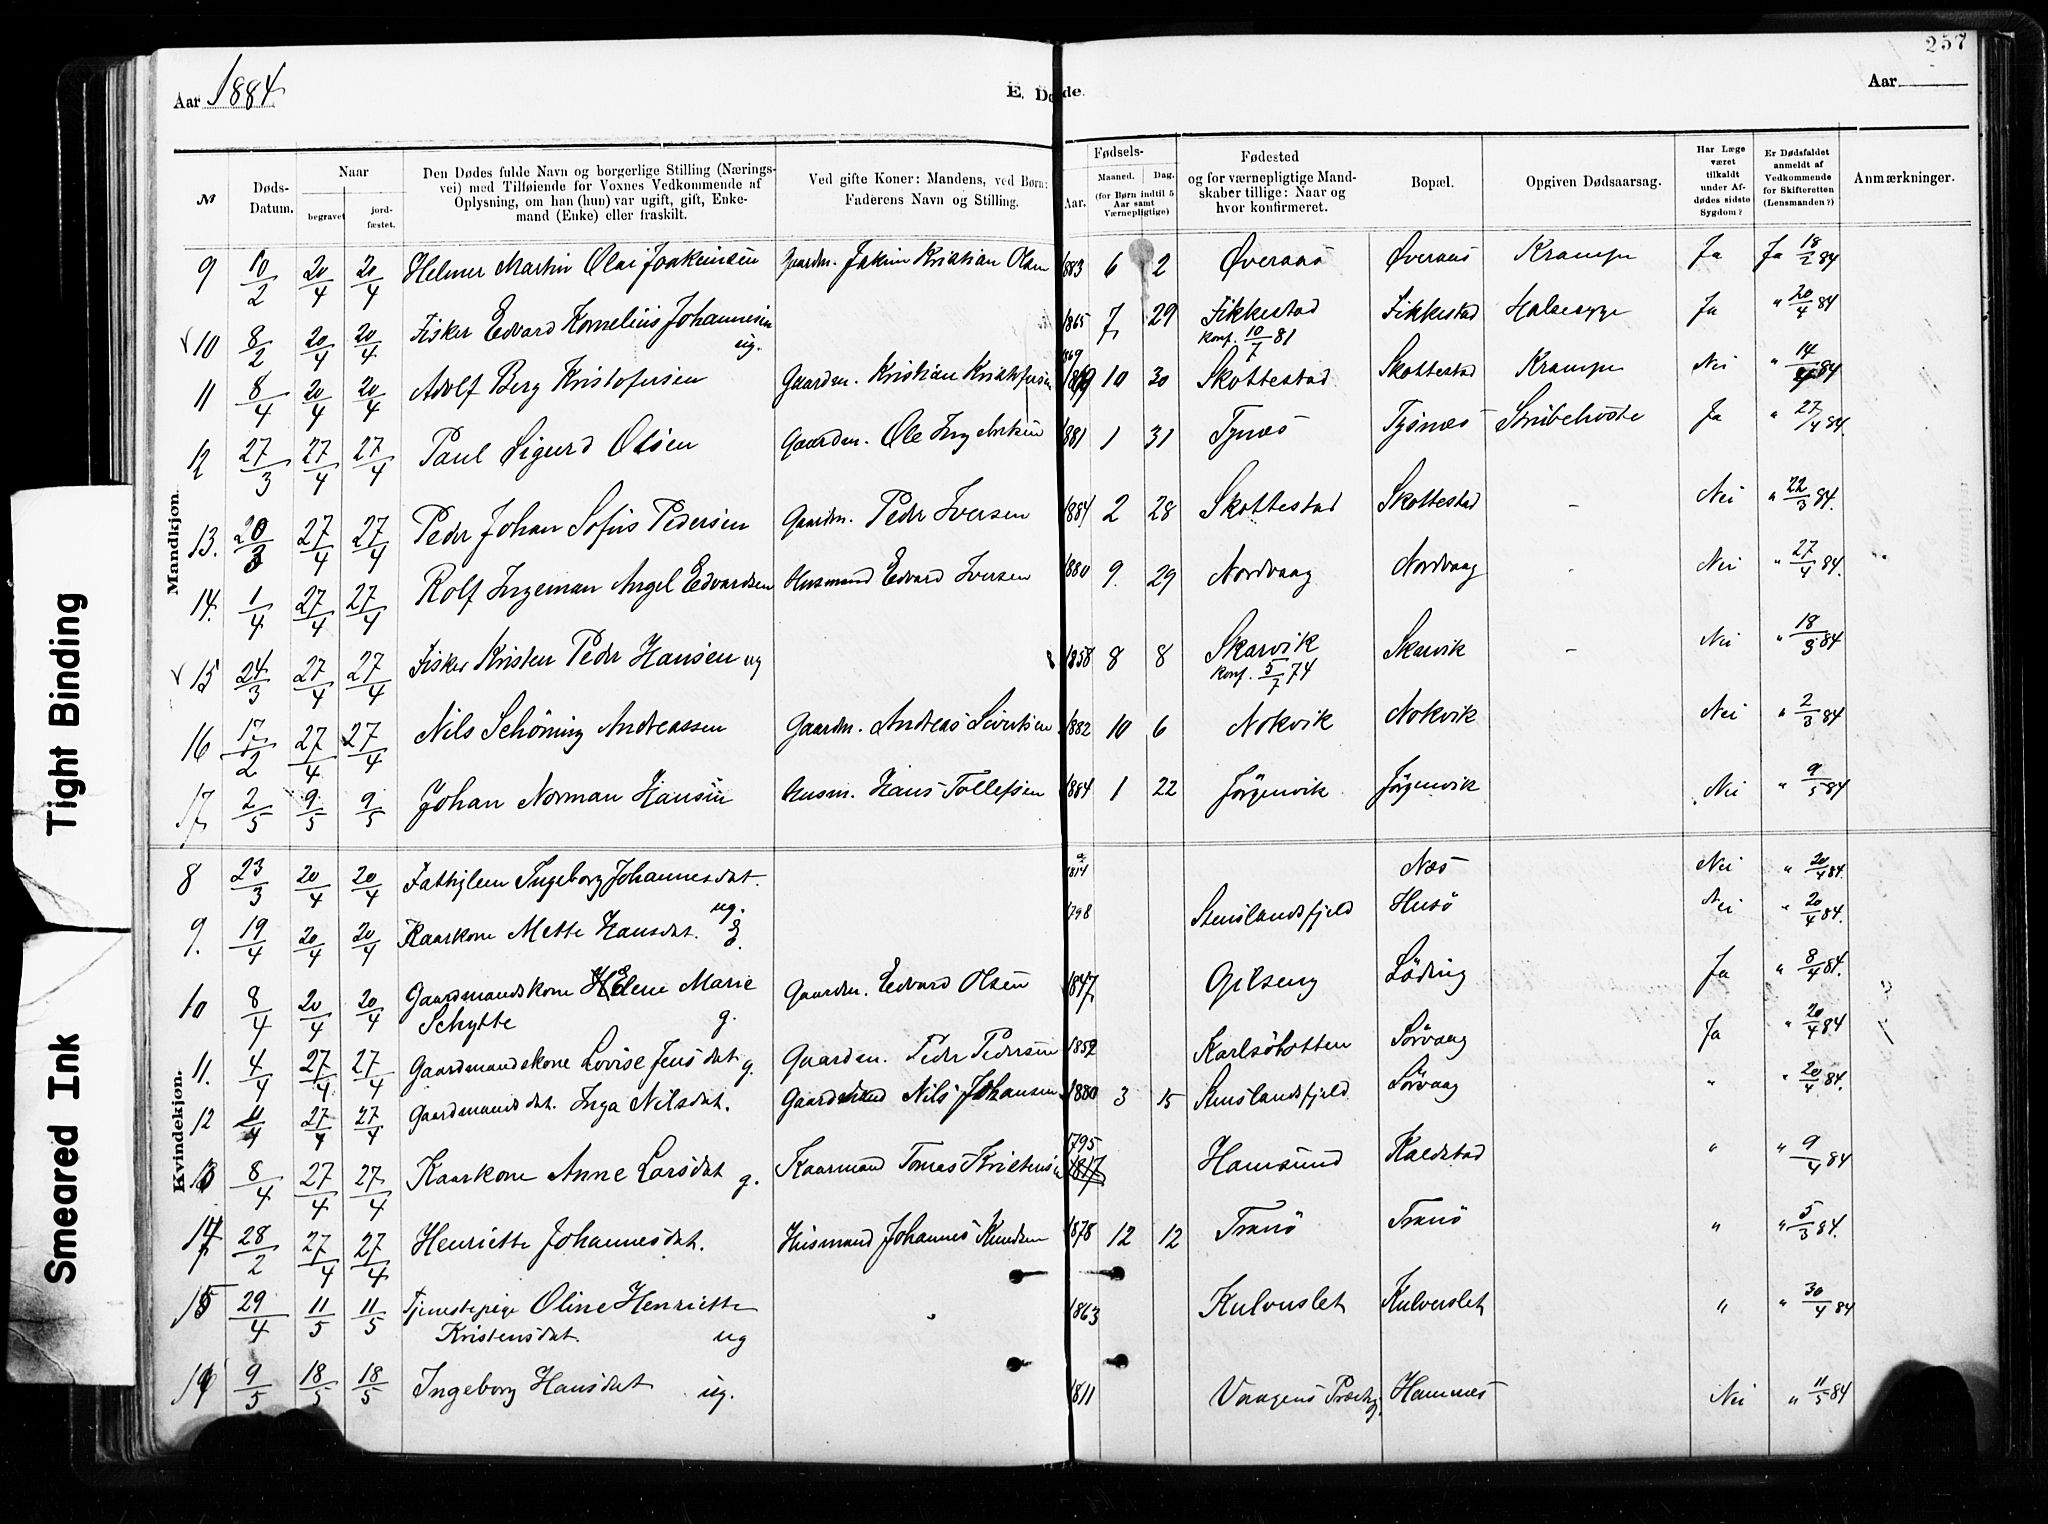 257
Aar 1884 E. Døde. Aar
№ Døds-Datum. Naar begravet jordfæstet. Den Dødes fulde Navn og borgerlige Stilling (Nærings-vei) med Tilføiende for Voxnes Vedkommende af Oplysning, om han (hun) var ugift, gift, Enkemand (Enke) eller fraskilt. Ved gifte Koner: Mandens, ved Børn: Faderens Navn og Stilling. Fødsels- Aar. Maaned. Dag. (for Børn indtil 5 Aar samt Værnepligtige) Fødested og for værnepligtige Mandskaber tillige: Naar og hvor konfirmeret. Bopæl. Opgiven Dødsaarsag. Har Læge været tilkaldt under Afdødes sidste Sygdom? Er Dødsfaldet anmeldt af Vedkommende for Skifteretten (Lensmanden?) Anmærkninger.
Mandkjøn.
9 10/2 20/4 20/4 Helmer Martin Olai Joakimsen Gaardm. Jakim Kristian Olsen 1883 6 2 Øveraas Øveraas Krampe Ja Ja 18/2 84
10 8/2 20/4 20/4 Fisker Edvard Kornelius Johannesen ug. 1865 7 29 Fikkestad Konf. 10/7 81 Fikkestad Halssyge Ja " 20/4 84
11 8/4 20/4 20/4 Adolf Berg Kristofersen Gaardm. Kristian Kristofersen 1869 10 30 Skottestad Skottestad Krampe Nei " 14/4 84
12 27/3 27/4 27/4 Paul Sigurd Olsen Gaardm. Ole 1881 1 31 Tynes Tysnes Strubehoste Ja " 27/4 84.
13. 20/3 27/4 27/4 Peder Johan Sofus Pedersen Gaardm. Peder Iversen 1884 2 28 Skottestad Skottestad - Nei " 22/3 84.
14. 1/4 27/4 27/4 Rolf Ingeman Angel Edvardsen Husmand Edvard Iversen 1880 9. 29 Nordvaag Nordvaag - Nei " 27/4 84.
15 24/3 27/4 27/4 Fisker Kristen Peder Hansen ug 1858 8 8 Skarvik Konf. 5/7 74 Skarvik - Nei " 18/3 84
16 17/2 27/4 27/4 Nils Schöning Andreassen Gaardm. Andreas Sivertsen 1882 10 6 Nokvik Nokvik Nei " 2/3 84
17 2/5 9/5 9/5 Johan Norman Hansen Husm. Hans Tollefsen 1884 1 22 Jörgenvik Jörgenvik Nei " 9/5 84
Kvindekjøn.
8 23/3 20/4 20/4 Fattiglem Ingeborg Johannesdat. ug. 1814 Næs Nei " 20/4 84.
9. 19/4 20/4 20/4 Kaarkone Mette Hansdat. E. 1798 Stenslandsfjeld Husö Nei " 20/4 84.
10 8/4 20/4 20/4 Gaardmandskone Helene Marie Schytte g. Gaardm. Edvard Olsen 1847 Gilseng Löding Ja " 8/4 84.
11. 4/4 27/4 27/4 Gaardmandskone Lovise Jensdat g. Gaardm. Peder Pedersen 1852 Karlsöhotten Sörvaag Ja " 20/4 84
12 11/4 27/4 27/4 Gaardmandsdat. Inga Nilsdat. Gaardmand Nils Johansen 1880 3 15 Stenslandsfjeld Sörvaag " " 20/4 84.
13 8/4 27/4 27/4 Kaarkone Anne Larsdat g. Kaarmand Tomas Kristensen 1795 1817 Hamsund Kaldstad " " 9/4 84
14 28/2 27/4 27/4 Henriette Johannesdat. Husmand Johannes Knudsen 1878 12 12 Tranö Tranö " " 5/3 84.
15 29/4 11/5 11/5 Tjenestepige Oline Henriette Kristensdat. ug " 1863 Kulverslet Kulverslet " " 30/4 84
9/5 18/5 18/5 Ingeborg Hansdat ug. 1811 Vaagens Præstg. Hamnes Nei " 11/5 84
Tight Binding
Smeared Ink